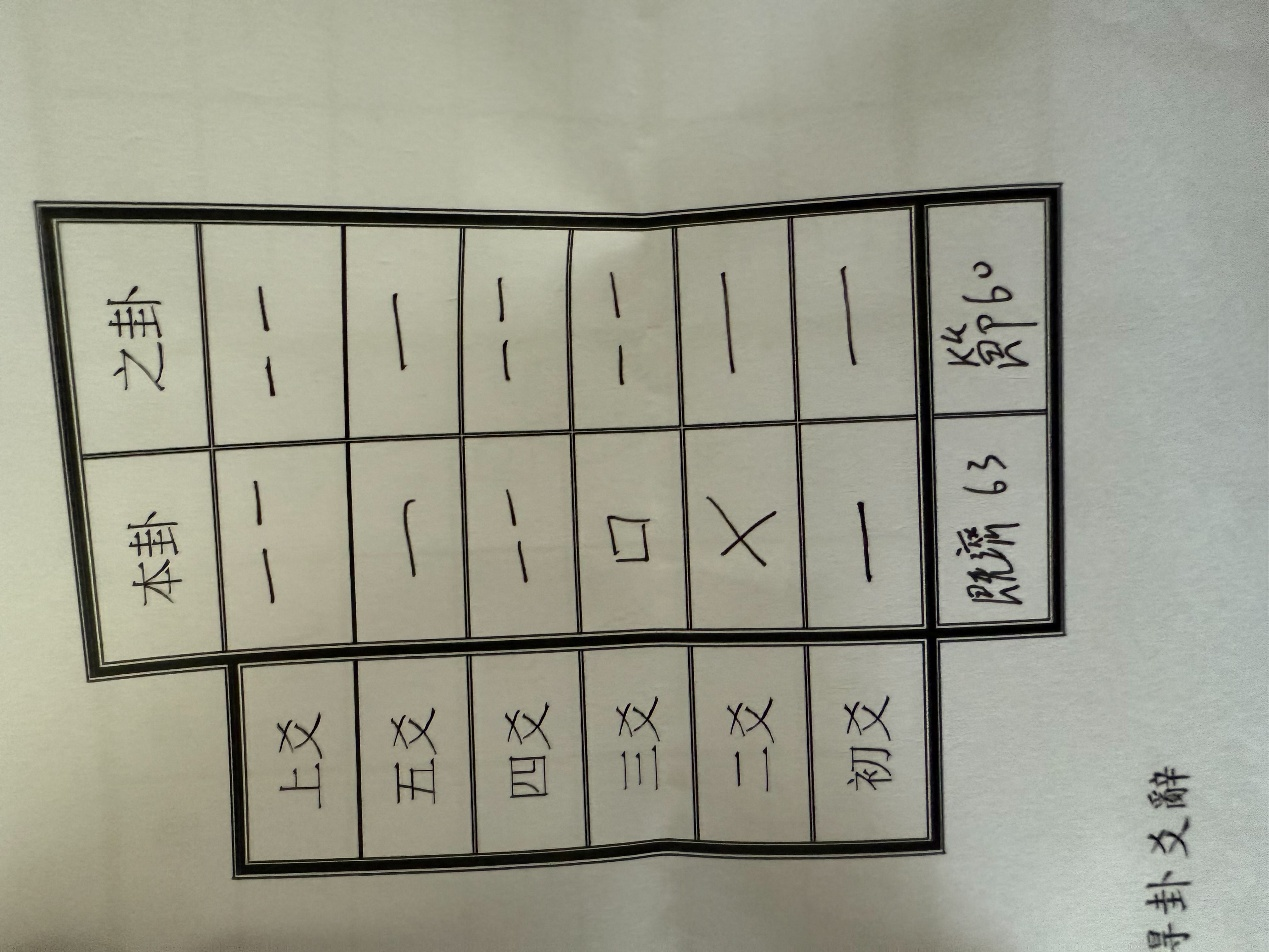 本卦 之卦
上爻 -- --
五爻 — —
四爻 -- --
三爻 口 --
二爻 X —
初爻 — —
既濟 63 節 60
尋卦爻辭